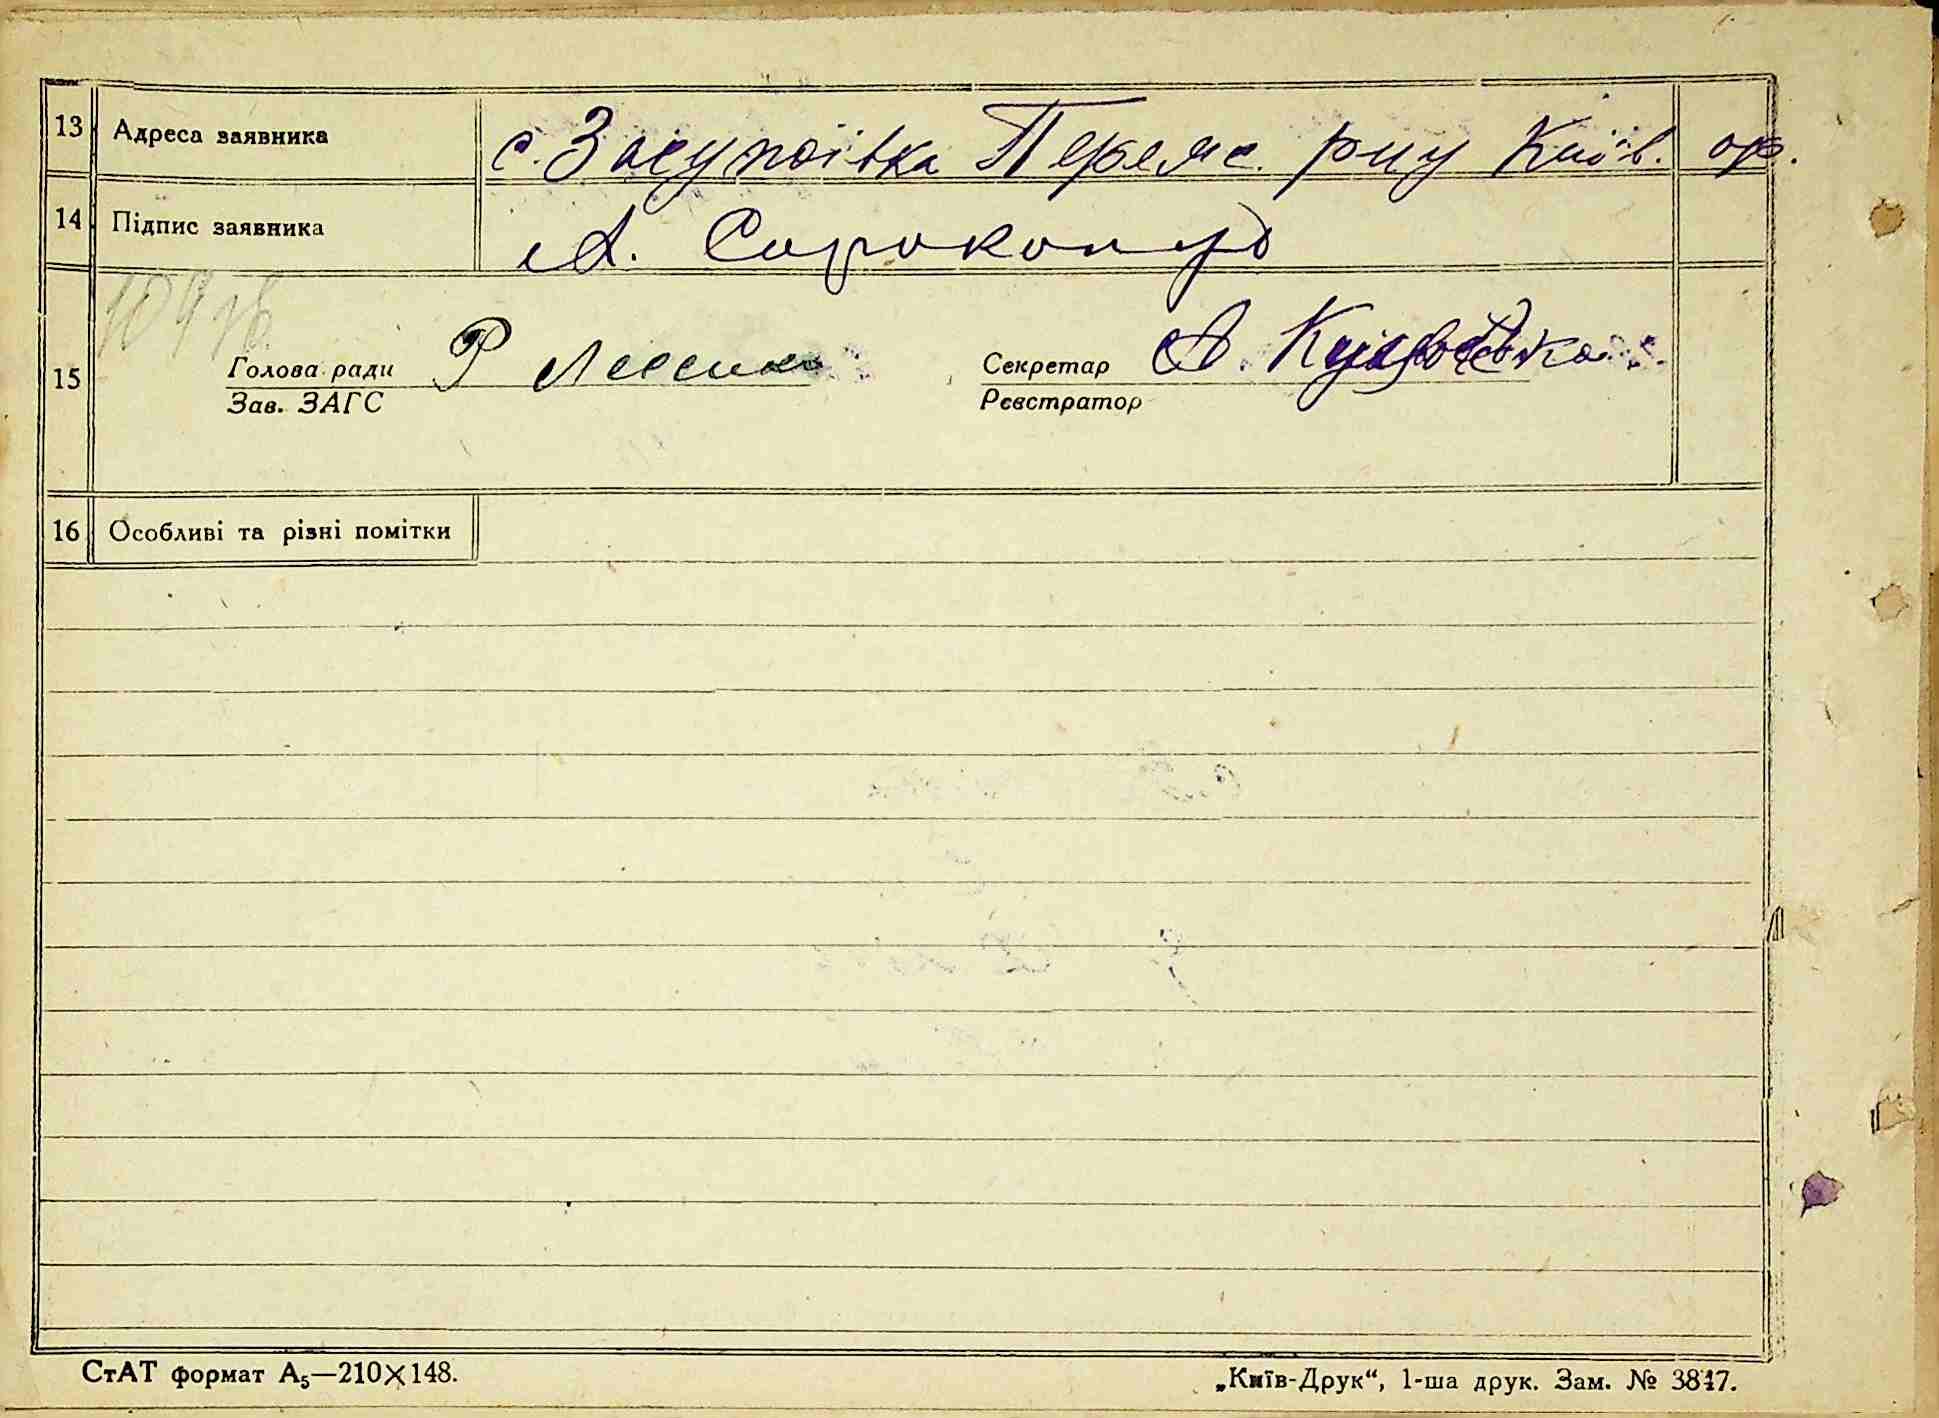 13 Адреса заявника с. Засупоївка Переяс. р-ну Київ. ок.
14 Підпис заявника А. Сорокопуд
15
Голова ради Р Лесенко Секретар А.
Зав. ЗАГС Реєстратор
16 Особливі та різні помітки
СтАТ формат А₅—210×148. „Київ-Друк“, 1-ша друк. Зам. № 3847.